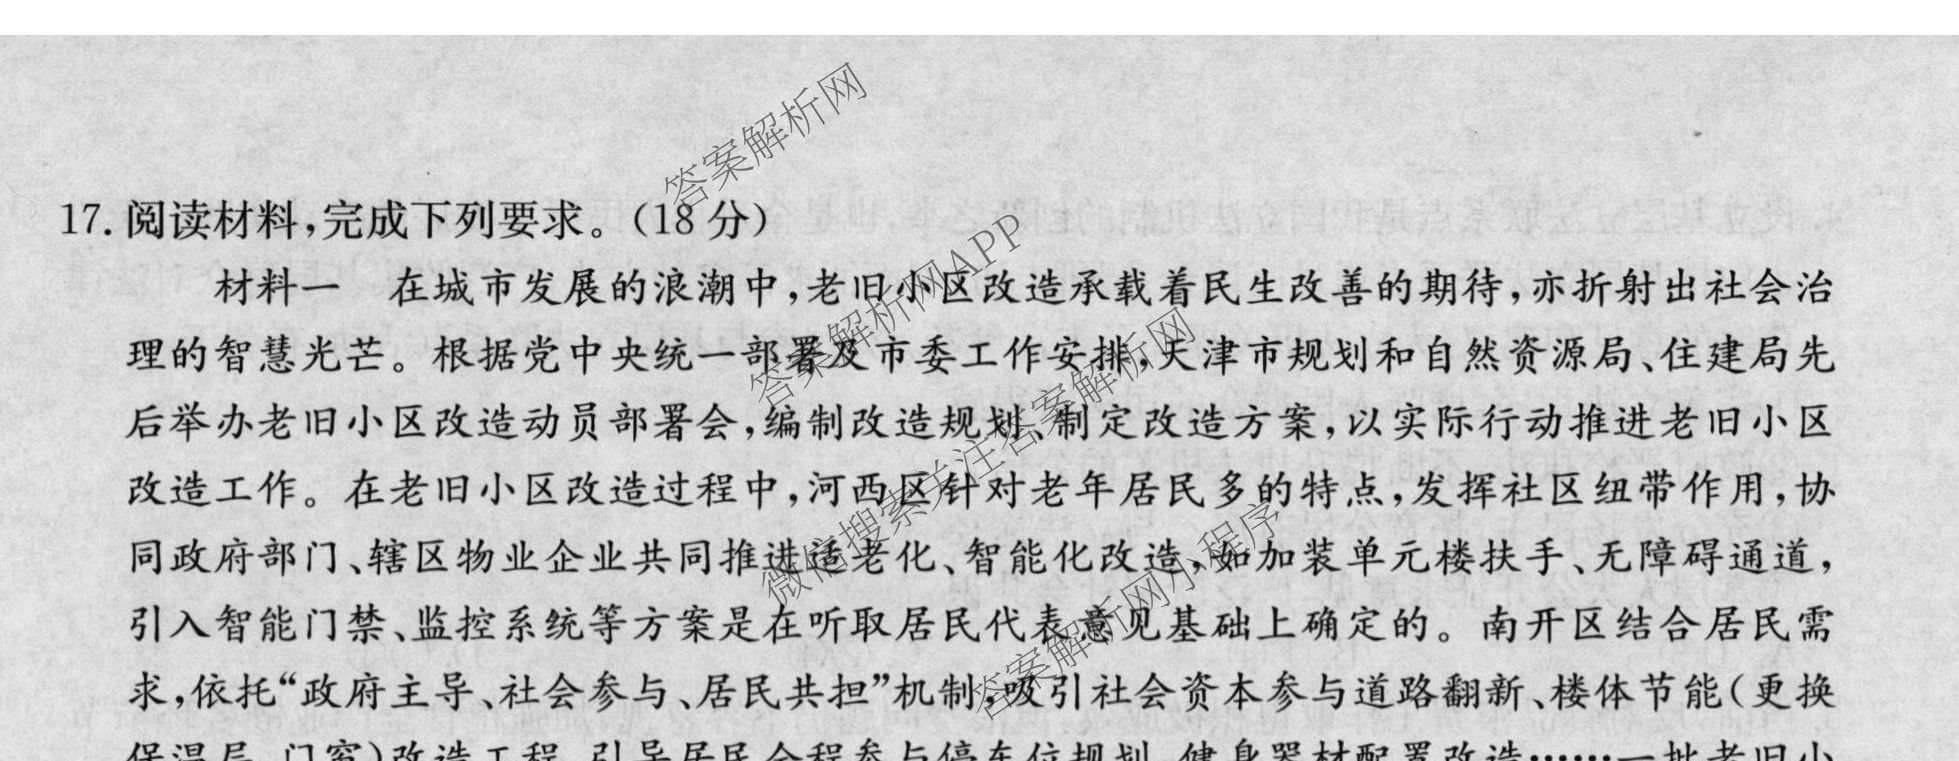 17. 阅读材料,完成下列要求。(18 分)
材料一 在城市发展的浪潮中,老旧小区改造承载着民生改善的期待,亦折射出社会治
理的智慧光芒。根据党中央统一部署及市委工作安排,天津市规划和自然资源局、住建局先
后举办老旧小区改造动员部署会,编制改造规划、制定改造方案,以实际行动推进老旧小区
改造工作。在老旧小区改造过程中,河西区针对老年居民多的特点,发挥社区纽带作用,协
同政府部门、辖区物业企业共同推进适老化、智能化改造,如加装单元楼扶手、无障碍通道,
引入智能门禁、监控系统等方案是在听取居民代表意见基础上确定的。南开区结合居民需
求,依托“政府主导、社会参与、居民共担”机制,吸引社会资本参与道路翻新、楼体节能(更换
保温层、门窗)改造工程,引导居民全程参与停车位规划、健身器材配置改造……一批老旧小
答案解析网
答案解析网APP
微信搜索关注答案解析网
答案解析网小程序